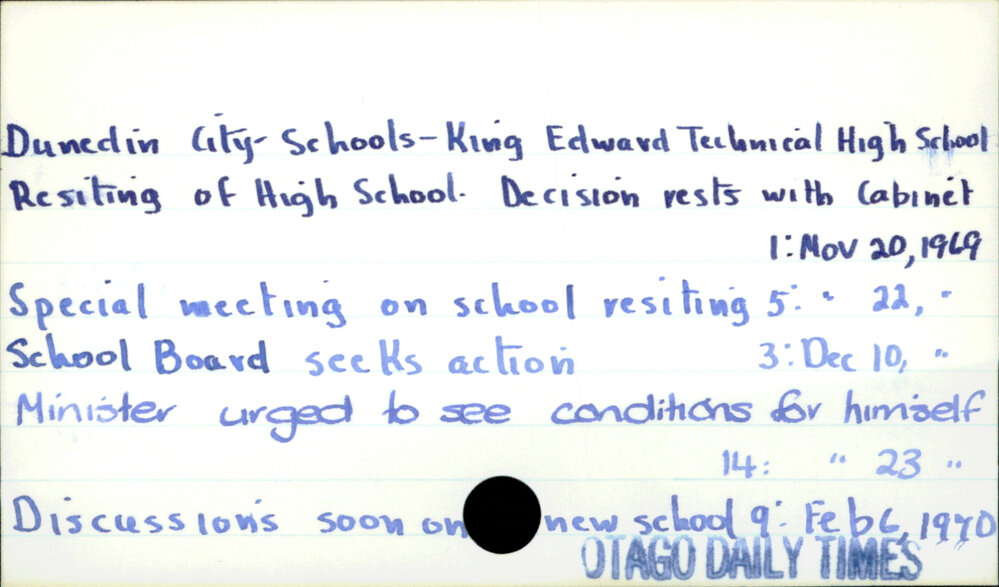 Dunedin City - Schools - King Edward Technical High School
Resiting of High School. Decision rests with Cabinet
1: Nov 20, 1969
Special meeting on school resiting 5: " 22, "
School Board seeks action 3: Dec 10, "
Minister urged to see conditions for himself
14: " 23 "
Discussions soon on new school 9: Feb 6, 1970
OTAGO DAILY TIMES